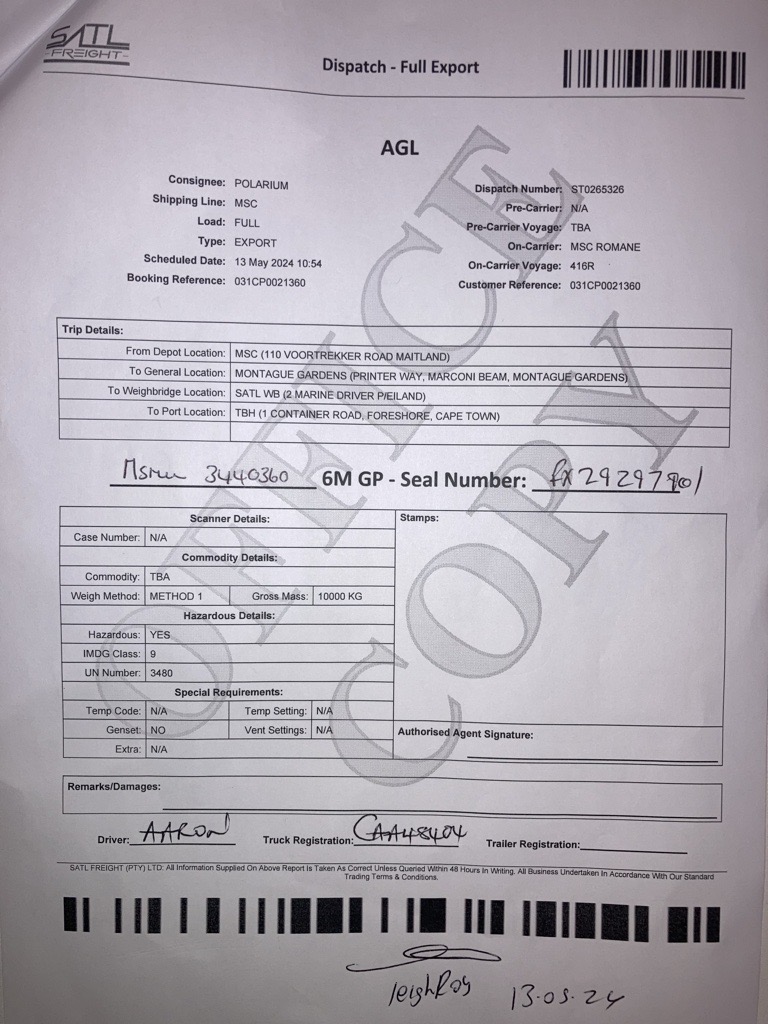 SATL
FREIGHT
Dispatch - Full Export
AGL
Consignee: POLARIUM
Shipping Line: MSC
Load: FULL
Type: EXPORT
Scheduled Date: 13 May 2024 10:54
Booking Reference: 031CP0021360
Dispatch Number: ST0265326
Pre-Carrier: N/A
Pre-Carrier Voyage: TBA
On-Carrier: MSC ROMANE
On-Carrier Voyage: 416R
Customer Reference: 031CP0021360
OFFICE COPY
Trip Details:
From Depot Location: MSC (110 VOORTREKKER ROAD MAITLAND)
To General Location: MONTAGUE GARDENS (PRINTER WAY, MARCONI BEAM, MONTAGUE GARDENS)
To Weighbridge Location: SATL WB (2 MARINE DRIVER P/EILAND)
To Port Location: TBH (1 CONTAINER ROAD, FORESHORE, CAPE TOWN)
Msmu 3440360 6M GP - Seal Number:
Scanner Details:
Case Number: N/A
Commodity Details:
Commodity: TBA
Weigh Method: METHOD 1 Gross Mass: 10000 KG
Hazardous Details:
Hazardous: YES
IMDG Class: 9
UN Number: 3480
Special Requirements:
Temp Code: N/A Temp Setting: N/A
Genset: NO Vent Settings: N/A
Extra: N/A
Stamps:
Authorised Agent Signature:
Remarks/Damages:
Driver: AARON Truck Registration: CAA48404 Trailer Registration:
SATL FREIGHT (PTY) LTD: All Information Supplied On Above Report Is Taken As Correct Unless Queried Within 48 Hours In Writing. All Business Undertaken In Accordance With Our Standard
Trading Terms & Conditions.
leighRoy 13.05.24